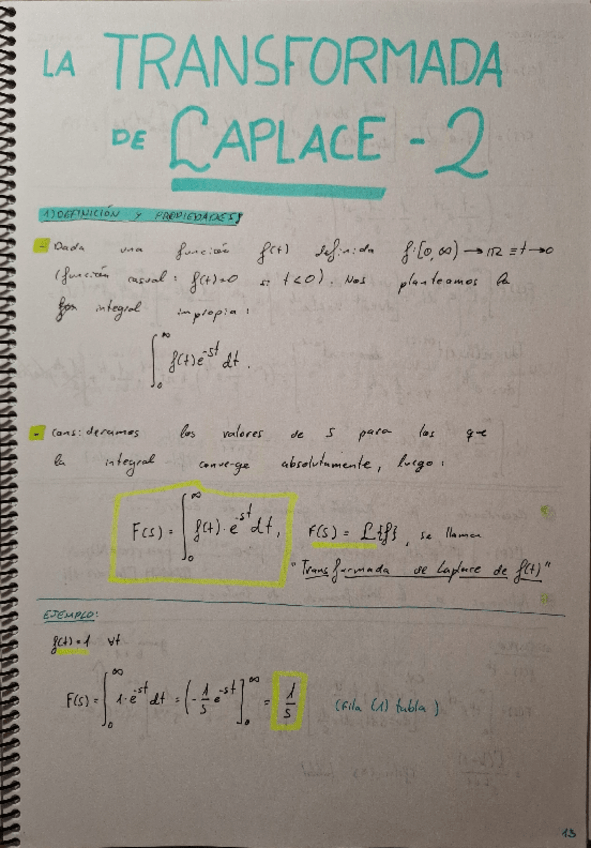 LA TRANSFORMADA
DE LAPLACE - 2
1) DEFINICIÓN Y PROPIEDADES
- Dada una función f(t) definida f:[0,∞) → ℝ ≡ t → 0
(función casual: f(t)=0 si t<0). Nos planteamos la
integral impropia:
∫₀^∞ f(t)e^-st dt.
- Consideramos los valores de s para los que
la integral converge absolutamente, luego:
F(s) = ∫₀^∞ f(t)·e^-st dt, F(s) = L{f}, se llama
"Transformada de Laplace de f(t)"
EJEMPLO:
f(t)=1 ∀t
F(s) = ∫₀^∞ 1·e^-st dt = (-1/s e^-st]₀^∞ = 1/s (Fila (1) tabla)
13